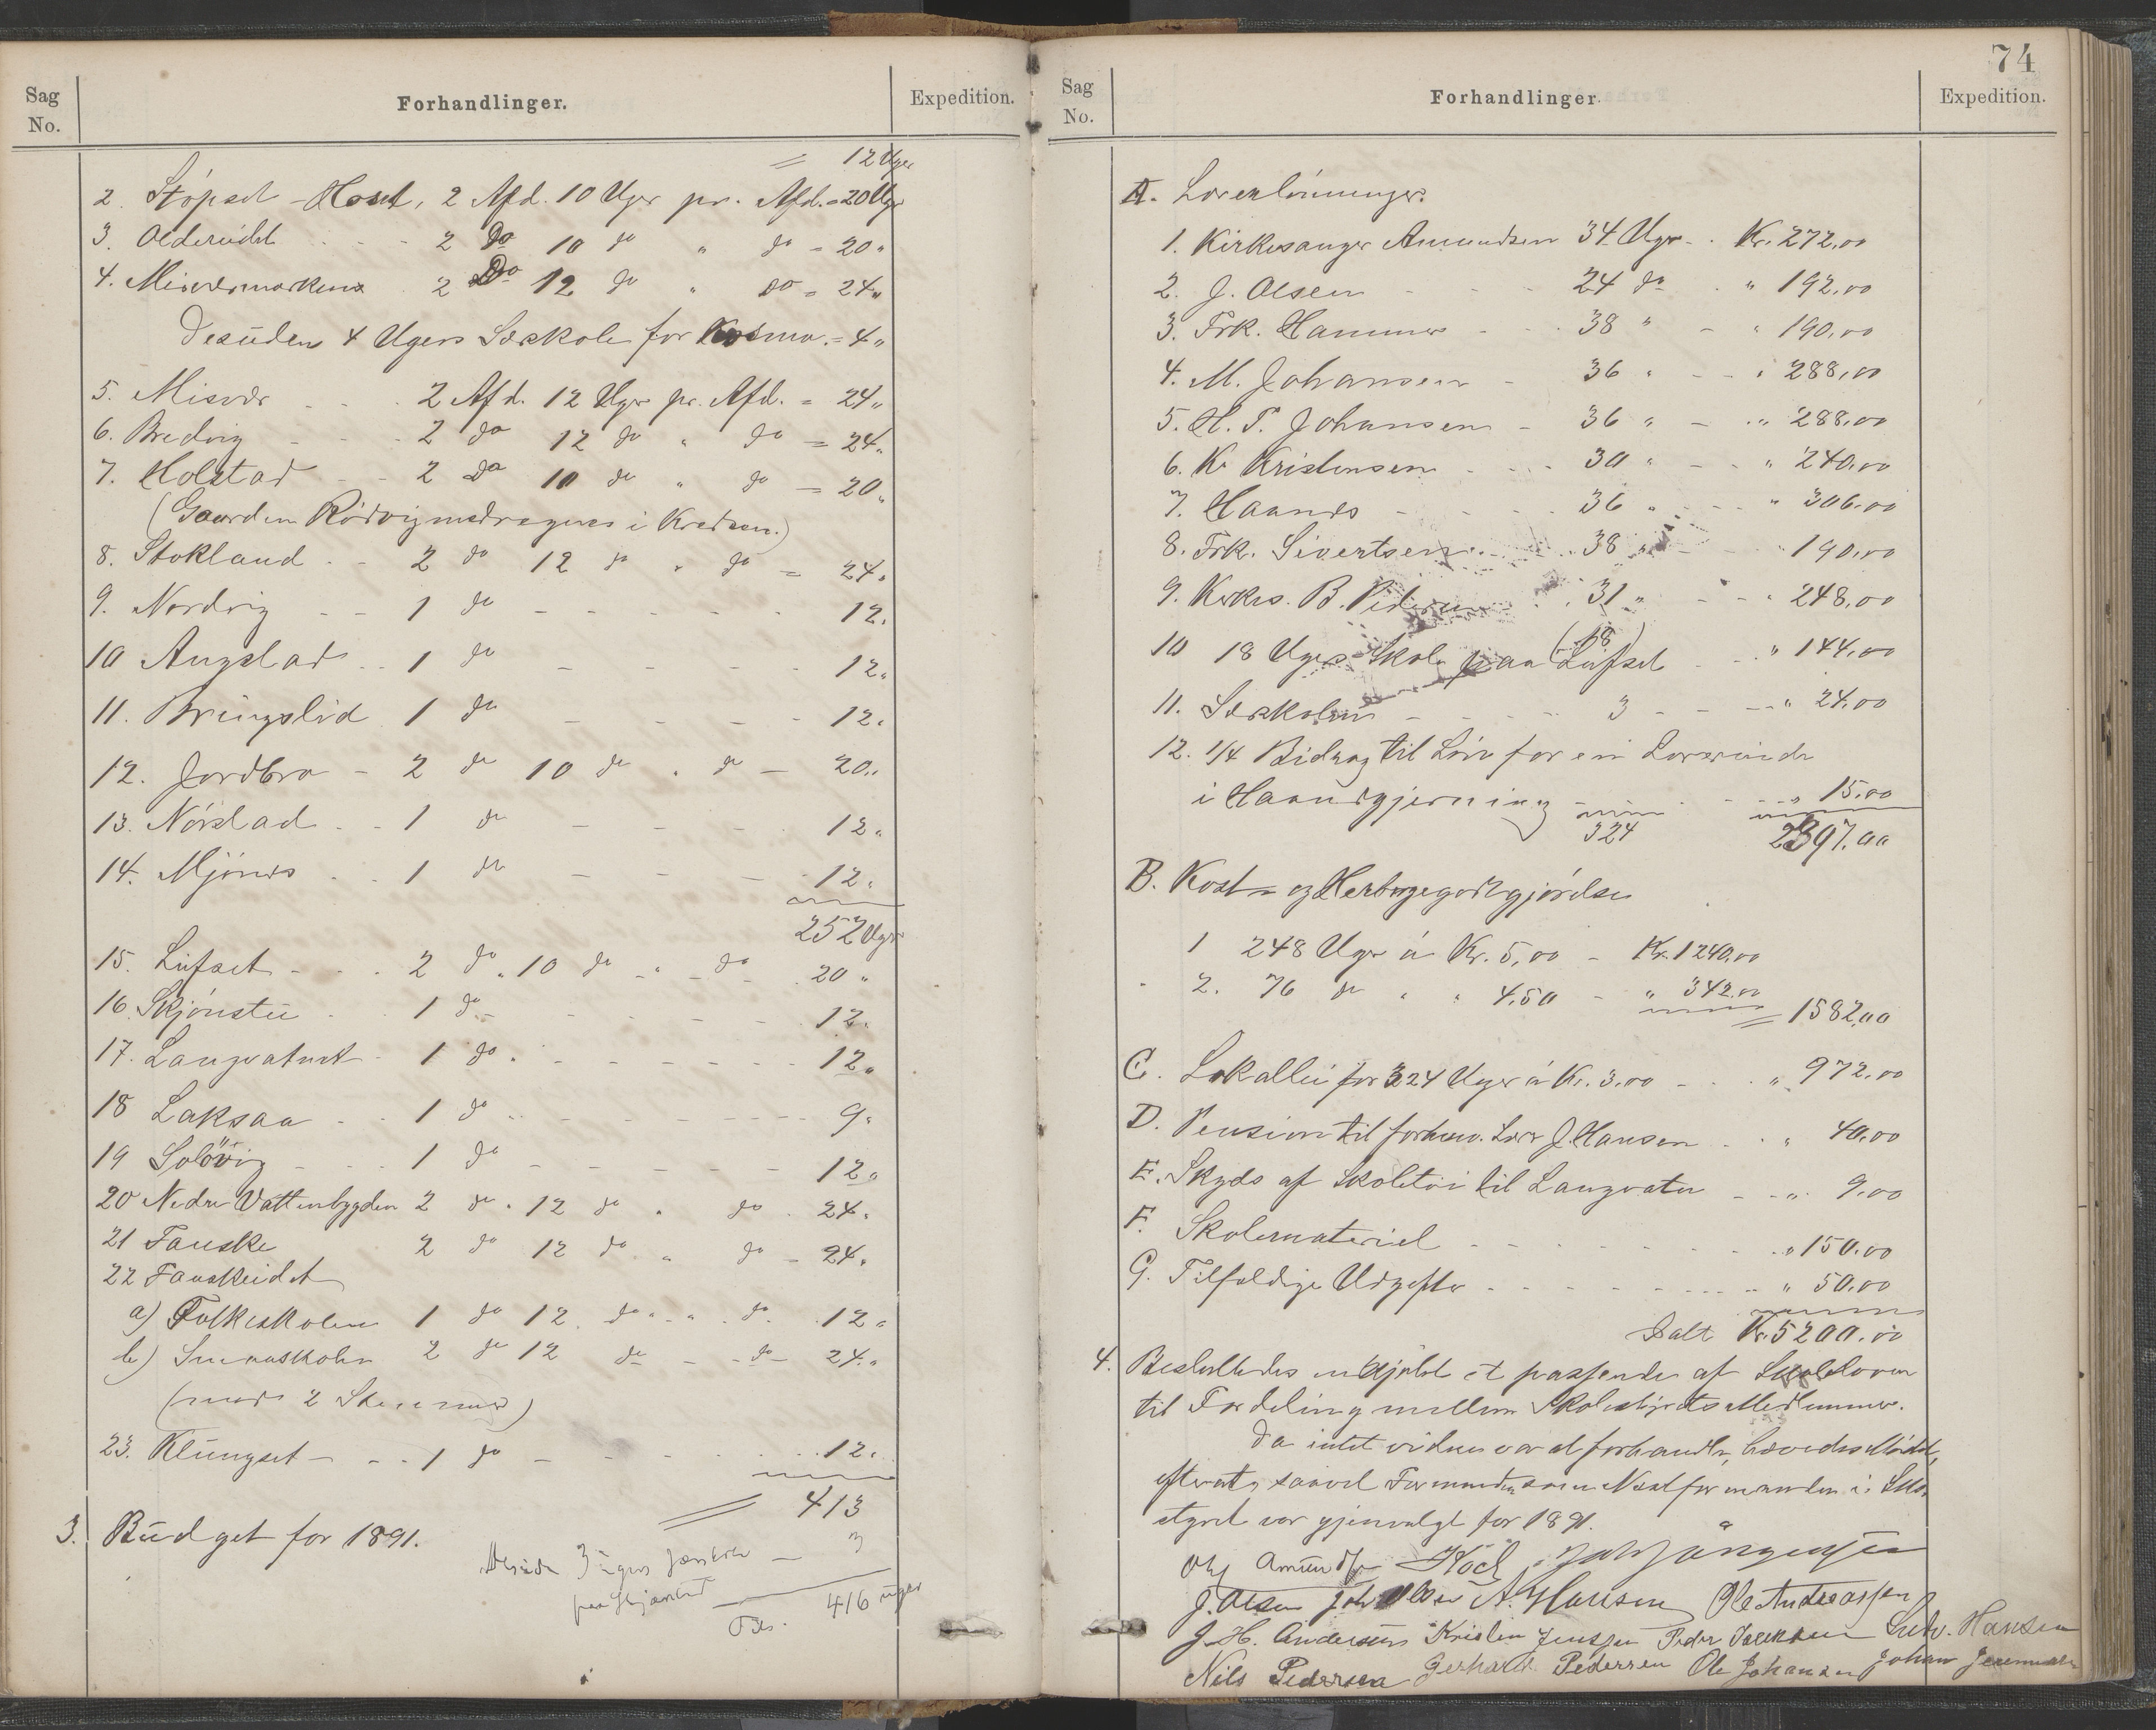 Sag No.
Forhandlinger.
Expedition.
= 12 Uger
2. Stöpset-Hoset, 2 Afd. 10 Uger pr. Afd. = 20 Uger
3. Oldereidet - - - 2 Do 10 do " do = 20 "
4. Misværmarken 2 Do 12 do " do = 24 "
Desüden 4 Ugers Særskole for Kosmo. = 4 "
5. Misvær - - 2 Afd. 12 Uger pr. Afd. = 24 "
6. Bredvig - - - 2 do 12 do " do = 24 "
7. Holstad - - 2 do 10 do " do = 20 "
(Gaarden Rödvig inddrages i Kredsen.)
8. Stokland - - 2 do 12 do " do = 24 "
9. Nordvig - - 1 do - - - - 12 "
10 Angstad - - 1 do - - - - 12 "
11. Bringslid 1 do - - - - 12 "
12. Jordbro - 2 do 10 do " do - 20 "
13. Nörstad - - 1 do - - - 12 "
14. Mjönes - - 1 do - - - 12 "
252 Uger
15. Lüfset - - - 2 do " 10 do - " - do 20 "
16. Skjönstü - - 1 do - - - - 12 "
17. Langvatnet - 1 do - - - - - 12 "
18 Laksaa - - 1 do - - - - - 9 "
19 Solövig - - - 1 do - - - - - 12 "
20 Nedre Vattenbygden 2 do " 12 do " do - 24 "
21 Fauske 2 do 12 do " do - 24 "
22 Fauskeidet
a) Folkeskolen 1 do 12 do " " do 12 "
b) Smaaskolen 2 do 12 do - - do - 24 "
(med 2 Stuer)
23. Klüngset - - - 1 do - - - - 12 "
= 413
3. Büdget for 1891.
Desüden 3 ügers Særskole - 3
paa Skjönstü
Tils. 416 uger
74
Sag No.
Forhandlinger.
Expedition.
A. Lærerlönninger.
1. Kirkesanger Amundsen 34 Uger - . Kr. 272,00
2. J. Olsen - - - 24 do . " 192,00
3. Frk. Hammer - - - 38 " - " 190,00
4. M. Johansen - 36 " - - " 288,00
5. H. P. Johansen - 36 " - " 288,00
6. K. Kristensen - - - 30 " - - " 240,00
7. Haanes - - - - 36 " - - " 306,00
8. Frk. Sivertsen - - - 38 " - - " 190,00
9. Kirkes. B. Pedersen - 31 " - - " 248,00
10 18 Ugers Skole paa Lüfset (18) - - " 144,00
11. Særskolen - - - - 3 - - - " 24,00
12. 1/4 Bidrag til Lön for en Lærerinde
i Haandgjerning - - - " 15,00
324 2397,00
B. Kost- og Herbergegodtgjörelse
1 248 Uger à Kr. 5,00 - Kr. 1240,00
2. 76 do " " 4,50 - " 342,00
= 1582,00
C. Lokalleie for 324 Uger à Kr. 3,00 - - " 972,00
D. Pension til forhenv. Lærer J. Hansen - - " 40,00
E. Skyds af Skoletöi til Langvatn - - " 9,00
F. Skolemateriel - - - - - " 150,00
G. Tilfældige Udgifter - - - - - " 50,00
Ialt Kr. 5200,00
4. Besluttedes indkjöbt et passende af Skoleloven
til Fordeling mellem Skolestyrets Medlemmer.
Da intet videre var at forhandle, hævedes Mödet,
efterat saavel Formanden som Næstformanden i Sko-
styret var gjenvalgt for 1891.
Ole Amündsen Koch Joh Jörgensen
J. Olsen Joh Olsen A. Hansen Ole Andreassen
J. H. Andersen Kristen Jenssen Peder Jakobsen Ludv. Hansen
Nils Pedersen Gerhard Pedersen Ole Johansen Johan Jeremiasen